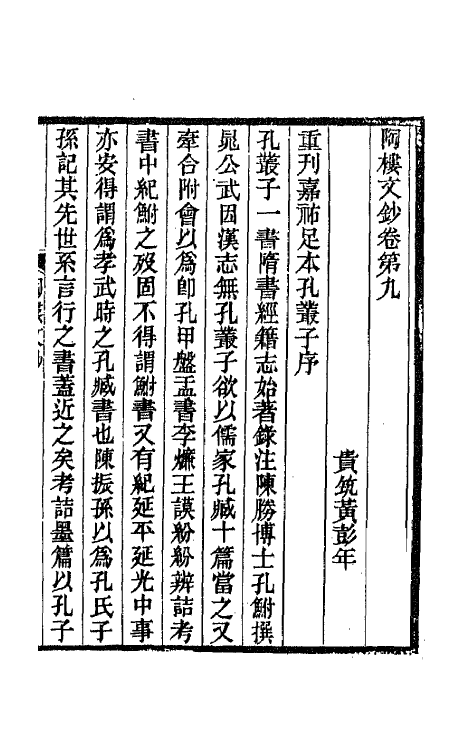 陶樓文鈔卷第九
貴筑黃彭年
重刊嘉祐足本孔叢子序
孔叢子一書隋書經籍志始著錄注陳勝博士孔鮒撰
晁公武因漢志無孔叢子欲以儒家孔臧十篇當之又
牽合附會以爲卽孔甲盤盂書李燾王謨紛紛辨詰考
書中紀鮒之歿固不得謂鮒書又有紀延平延光中事
亦安得謂爲孝武時之孔臧書也陳振孫以爲孔氏子
孫記其先世系言行之書蓋近之矣考詰墨篇以孔子